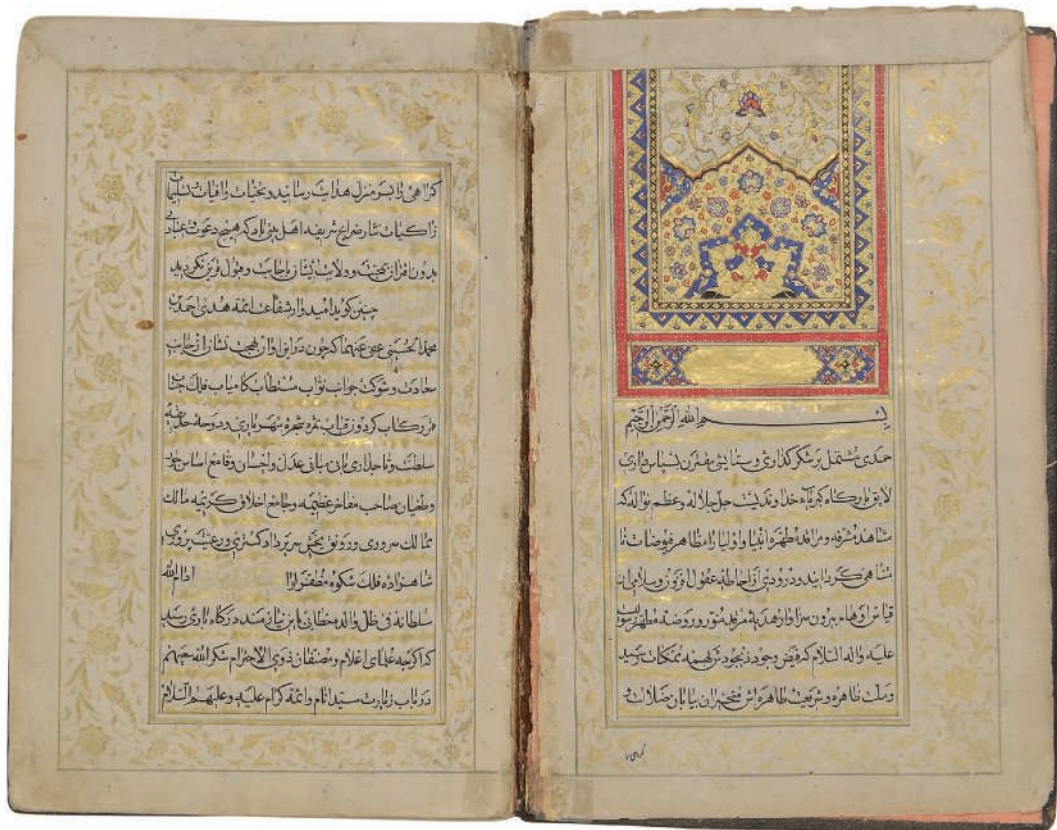 بسم الله الرحمن الرحیم
حمدی مشتمل بر شکر کذاری و ستایشی مقترن بسپاس داری
لایق بارکاه کبریاء خداوندیست جل جلاله و عظم نواله که
مشاهد مشرفه و مراقد مطهره انبیا و اولیا را مظاهر فیوضات نا
متناهی کردانیده و درودی از احاطهٔ عقول افزون و سلامی از
قیاس وهام بیرون سزاوار هدیهٔ مرقد منور و روضهٔ مطهر رسولیست
علیه واله السلام که فیض وجود ذیجودش بهمه ممکنات رسیده
وملت طاهره و شریعت ظاهره اش متحیران بیابان ضلالت و
گمراهی را
کمراهی را بسر منزل هدایت رسانیده و تحیات وافیات تسلیمات
زاکیات نثار ضرایح شریفه اهل بیتی باد که هیچ دعوت و عبادتی
بدون اقران بمحبت و ولایت ایشان باجابت و قبول قرین نکردید
چنین کوید امیدوار شفاعت ائمه هدی احمد بن
محمد الحسینی عفی عنهما که چون در این اوان بهجت نشان از جانب
سعادت و شوکت جوانب نواب مستطاب کامیاب فلک جناب
قباب ثمره شجره شهریاری و دوحه حدیقه
سلطنت و تاجداری بانی مبانی عدل و احسان و قامع اساس جور
وطغیان صاحب مفاخر عظیمه و جامع اخلاق کریمه مالک
ممالک سروری و رونق بخش سریر دادکستری و رعیت پروری
شاهزاده فلک شکوه مظفر لوا ادام الله
سلطانه فی ظل والده مخطاب باین نیازمند درکاه باری رسید
که اکرچه علمای اعلام و مصنفان ذوی الاحترام شکر الله سعیهم
در باب زیارت سید انام و ائمه کرام علیه و علیهم السلام